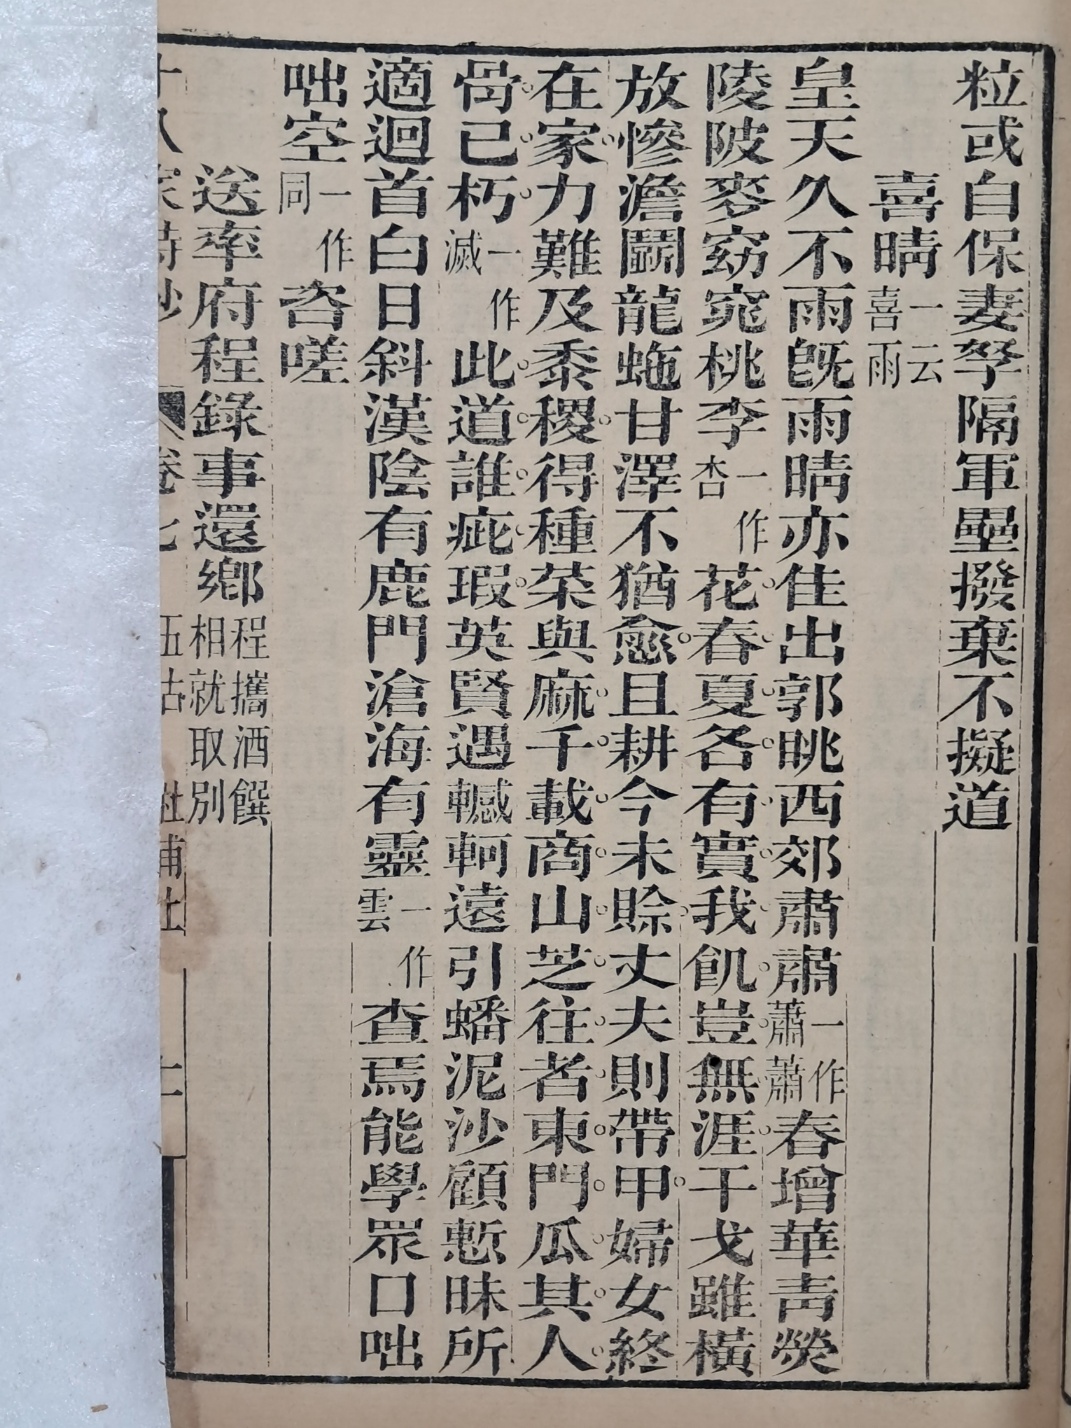 粒或自保妻孥隔軍壘撥棄不擬道
喜晴一云喜雨
皇天久不雨旣雨晴亦佳出郭眺西郊肅肅一作蕭蕭春增華靑熒
陵陂麥窈窕桃李一作杏花春夏各有實我飢豈無涯干戈雖橫
放慘澹鬬龍虵甘澤不猶愈且耕今未賖丈夫則帶甲婦女終
在家力難及黍稷得種菜與麻千載商山芝往者東門瓜其人
骨已朽一作滅此道誰疵瑕英賢遇轗軻遠引蟠泥沙顧慙昧所
適迴首白日斜漢陰有鹿門滄海有靈一作雲查焉能學眾口咄
咄空一作同咨嗟
送率府程錄事還鄉程攜酒饌相就取別